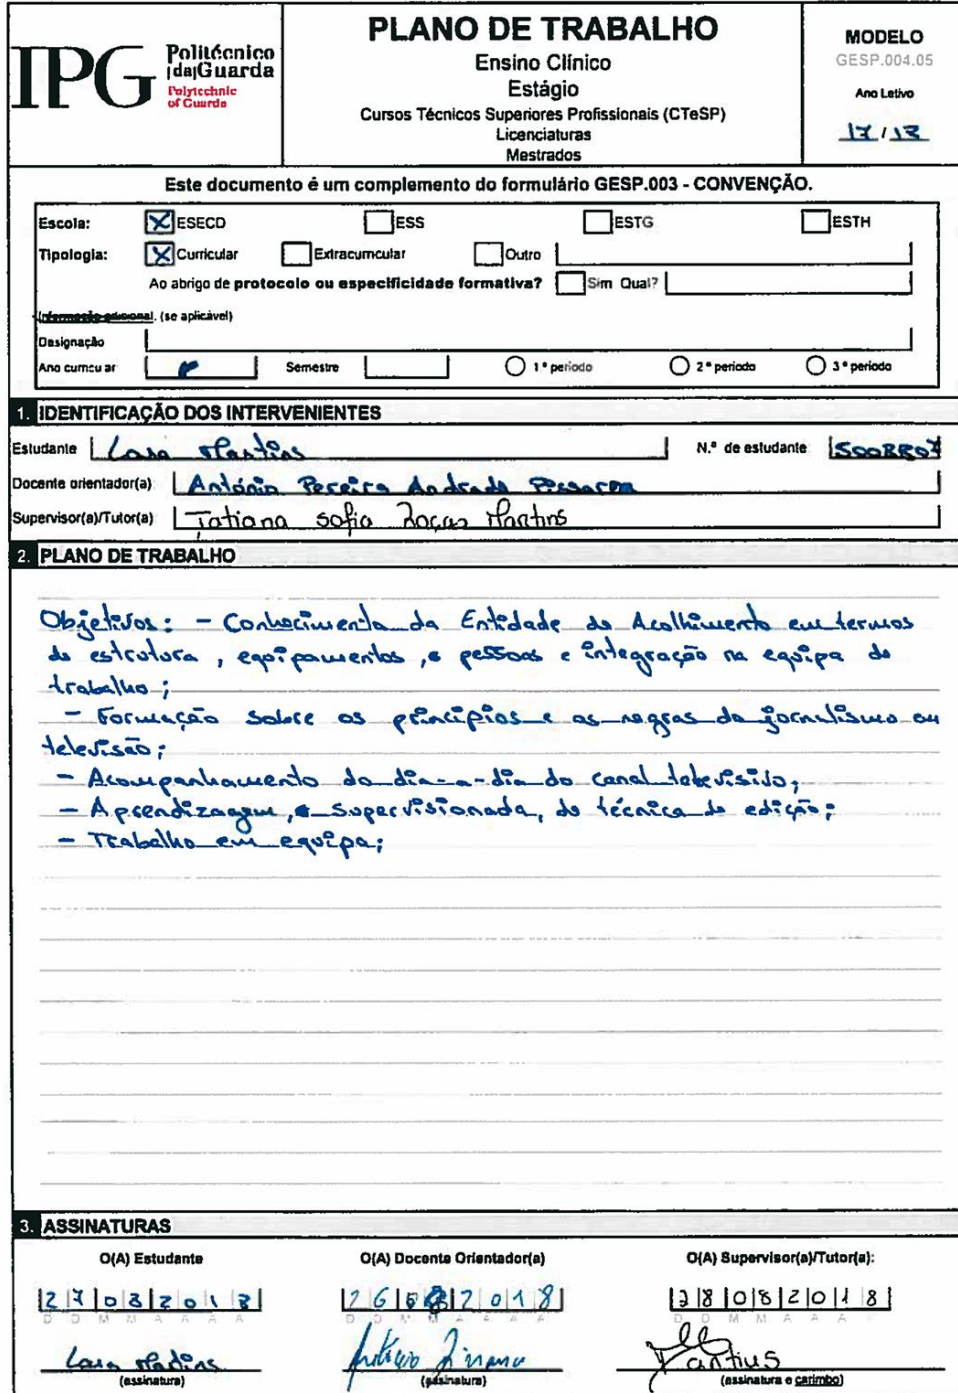 IPG Politécnico
|da|Guarda
Polytechnic
of Guarda
PLANO DE TRABALHO
Ensino Clínico
Estágio
Cursos Técnicos Superiores Profissionais (CTeSP)
Licenciaturas
Mestrados
MODELO
GESP.004.05
Ano Letivo
17/18
Este documento é um complemento do formulário GESP.003 - CONVENÇÃO.
Escola: ESECD ESS ESTG ESTH
Tipologia: Curricular Extracurricular Outro
Ao abrigo de protocolo ou especificidade formativa? Sim Qual?
Informação adicional. (se aplicável)
Designação
Ano curricular Semestre 1º período 2º período 3º período
1. IDENTIFICAÇÃO DOS INTERVENIENTES
Estudante Lara Martins N.º de estudante
Docente orientador(a) António Pereira Andrade Pissarra
Supervisor(a)/Tutor(a) Tatiana Sofia Martins
2. PLANO DE TRABALHO
Objetivos: - Conhecimento da Entidade de Acolhimento em termos
de estrutura, equipamentos, e pessoas e integração na equipa de
trabalho;
- Formação sobre os princípios e as regras do jornalismo em
televisão;
- Acompanhamento do dia-a-dia do canal televisivo;
- Aprendizagem, supervisionada, de técnica de edição;
- Trabalho em equipa;
3. ASSINATURAS
O(A) Estudante O(A) Docente Orientador(a) O(A) Supervisor(a)/Tutor(a):
27082018 28082018
D D M M A A A A D D M M A A A A D D M M A A A A
Lara Martins Martins
(assinatura) (assinatura) (assinatura e carimbo)